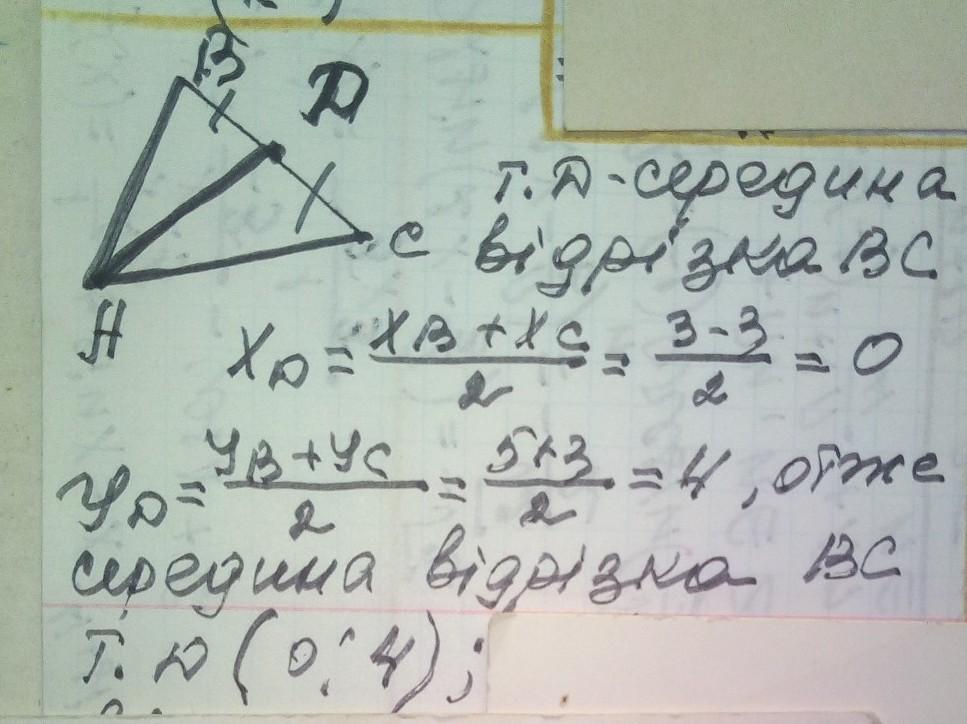 B
D
C
A
т. D - середина
відрізка BC
X_D = (X_B + X_C)/2 = (3 - 3)/2 = 0
y_D = (y_B + y_C)/2 = (5 + 3)/2 = 4, отже
середина відрізка BC
т. D (0; 4);